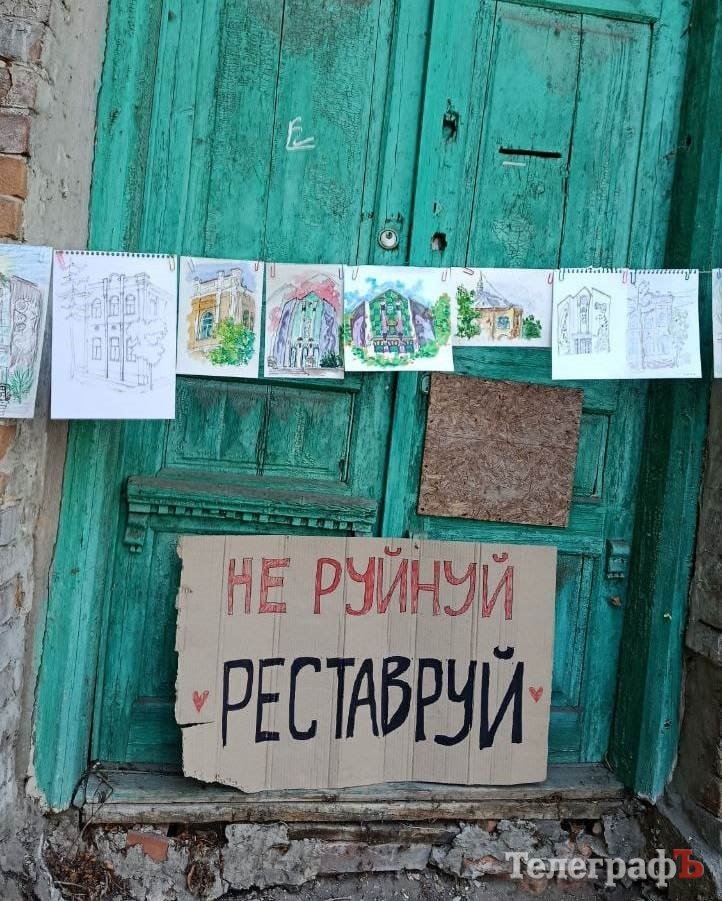 НЕ РУЙНУЙ
РЕСТАВРУЙ
ТелеграфЪ